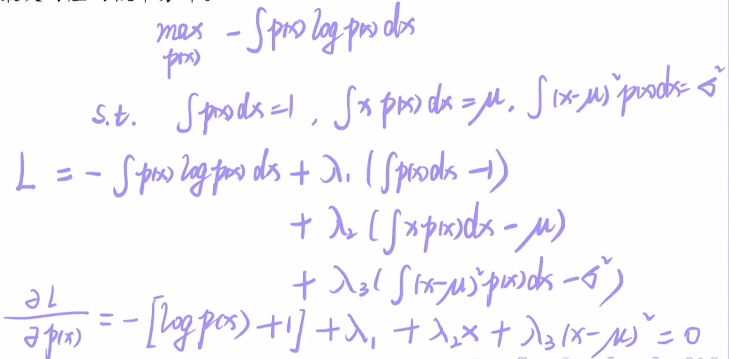 max - ∫p(x) log p(x) dx
p(x)
s.t. ∫p(x)dx=1, ∫x p(x) dx = μ, ∫(x-μ)²p(x)dx=σ²
L = - ∫p(x) log p(x) dx + λ₁ (∫p(x)dx -1)
+ λ₂ (∫x p(x)dx - μ)
+ λ₃ (∫(x-μ)²p(x)dx - σ²)
∂L/∂p(x) = - [log p(x) +1] + λ₁ + λ₂x + λ₃(x-μ)² = 0